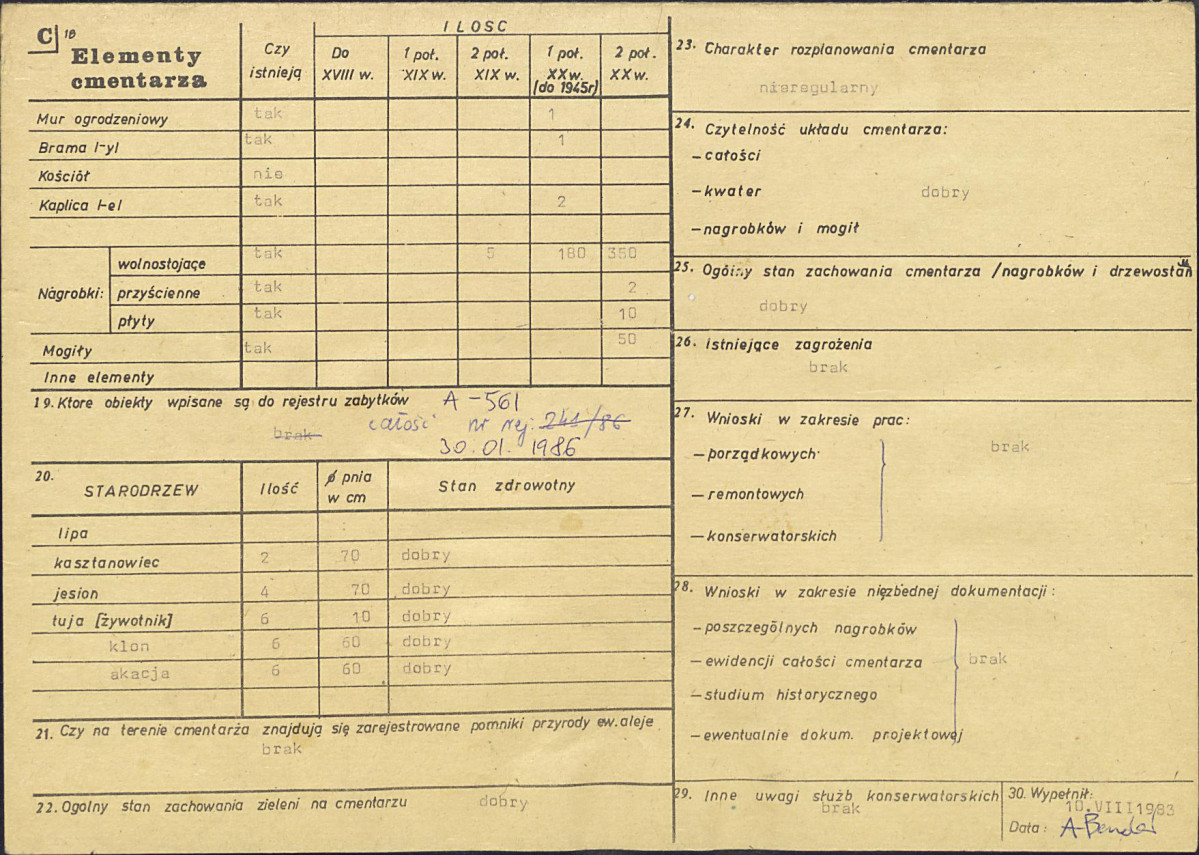 C 18
Elementy cmentarza
Czy istnieją
ILOSC
Do XVIII w.
1 poł. XIX w.
2 poł. XIX w.
1 poł. XX w. (do 1945r)
2 poł. XX w.
Mur ogrodzeniowy tak 1
Brama I-yl tak 1
Kościół nie
Kaplica I-el tak 2
Nagrobki:
wolnostojące tak 5 180 350
przyścienne tak 2
płyty tak 10
Mogiły tak 50
Inne elementy
19. Ktore obiekty wpisane są do rejestru zabytków A-561
brak całość nr rej. 241/86
30.01.1986
20. STARODRZEW Ilość ø pnia w cm Stan zdrowotny
lipa
kasztanowiec 2 70 dobry
jesion 4 70 dobry
tuja [żywotnik] 6 10 dobry
klon 6 60 dobry
akacja 6 60 dobry
21. Czy na terenie cmentarza znajdują się zarejestrowane pomniki przyrody ew. aleje
brak
22. Ogolny stan zachowania zieleni na cmentarzu dobry
23. Charakter rozplanowania cmentarza
nieregularny
24. Czytelność układu cmentarza:
– całości
– kwater dobry
– nagrobków i mogił
25. Ogólny stan zachowania cmentarza /nagrobków i drzewostanu
dobry
26. Istniejące zagrożenia
brak
27. Wnioski w zakresie prac:
– porządkowych brak
– remontowych
– konserwatorskich
28. Wnioski w zakresie niezbednej dokumentacji:
– poszczególnych nagrobków
– ewidencji całości cmentarza brak
– studium historycznego
– ewentualnie dokum. projektowej
29. Inne uwagi służb konserwatorskich
brak
30. Wypełnił:
10.VIII1983
Data: A. Bender